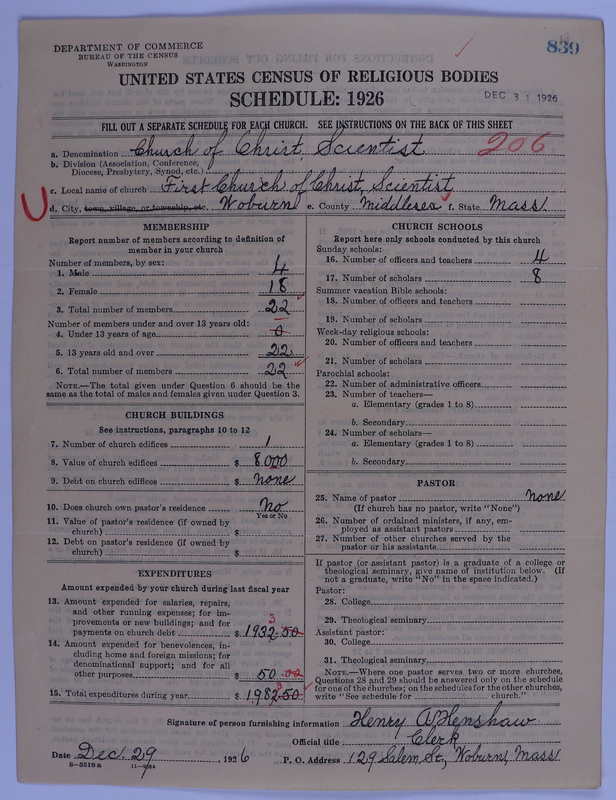 839
DEPARTMENT OF COMMERCE
BUREAU OF THE CENSUS
WASHINGTON
UNITED STATES CENSUS OF RELIGIOUS BODIES
SCHEDULE: 1926
DEC 31 1926
FILL OUT A SEPARATE SCHEDULE FOR EACH CHURCH. SEE INSTRUCTIONS ON THE BACK OF THIS SHEET
a. Denomination Church of Christ, Scientist 206
b. Division (Association, Conference, Diocese, Presbytery, Synod, etc.)
c. Local name of church First Church of Christ, Scientist
d. City, town, village, or township, etc. Woburn e. County Middlesex f. State Mass.
MEMBERSHIP
Report number of members according to definition of member in your church
Number of members, by sex:
1. Male 4
2. Female 18
3. Total number of members 22
Number of members under and over 13 years old:
4. Under 13 years of age 0
5. 13 years old and over 22
6. Total number of members 22
NOTE.—The total given under Question 6 should be the same as the total of males and females given under Question 3.
CHURCH BUILDINGS
See instructions, paragraphs 10 to 12
7. Number of church edifices 1
8. Value of church edifices $ 8000
9. Debt on church edifices $ none
10. Does church own pastor's residence No
Yes or No
11. Value of pastor's residence (if owned by church) $
12. Debt on pastor's residence (if owned by church) $
EXPENDITURES
Amount expended by your church during last fiscal year
13. Amount expended for salaries, repairs, and other running expenses; for improvements or new buildings; and for payments on church debt $ 1932.50
3
14. Amount expended for benevolences, including home and foreign missions; for denominational support; and for all other purposes $ 50.00
15. Total expenditures during year $ 1982.50
3
CHURCH SCHOOLS
Report here only schools conducted by this church
Sunday schools:
16. Number of officers and teachers 4
17. Number of scholars 8
Summer vacation Bible schools:
18. Number of officers and teachers
19. Number of scholars
Week-day religious schools:
20. Number of officers and teachers
21. Number of scholars
Parochial schools:
22. Number of administrative officers
23. Number of teachers—
a. Elementary (grades 1 to 8)
b. Secondary
24. Number of scholars—
a. Elementary (grades 1 to 8)
b. Secondary
PASTOR
25. Name of pastor none
(If church has no pastor, write "None")
26. Number of ordained ministers, if any, employed as assistant pastors
27. Number of other churches served by the pastor or his assistants
If pastor (or assistant pastor) is a graduate of a college or theological seminary, give name of institution below. (If not a graduate, write "No" in the space indicated.)
Pastor:
28. College
29. Theological seminary
Assistant pastor:
30. College
31. Theological seminary
NOTE.—Where one pastor serves two or more churches, Questions 28 and 29 should be answered only on the schedule for one of the churches; on the schedules for the other churches, write "See schedule for church."
Signature of person furnishing information Henry A. Henshaw
Official title Clerk
Date Dec. 29, 1926 P. O. Address 129 Salem St., Woburn, Mass.
8—5518 a